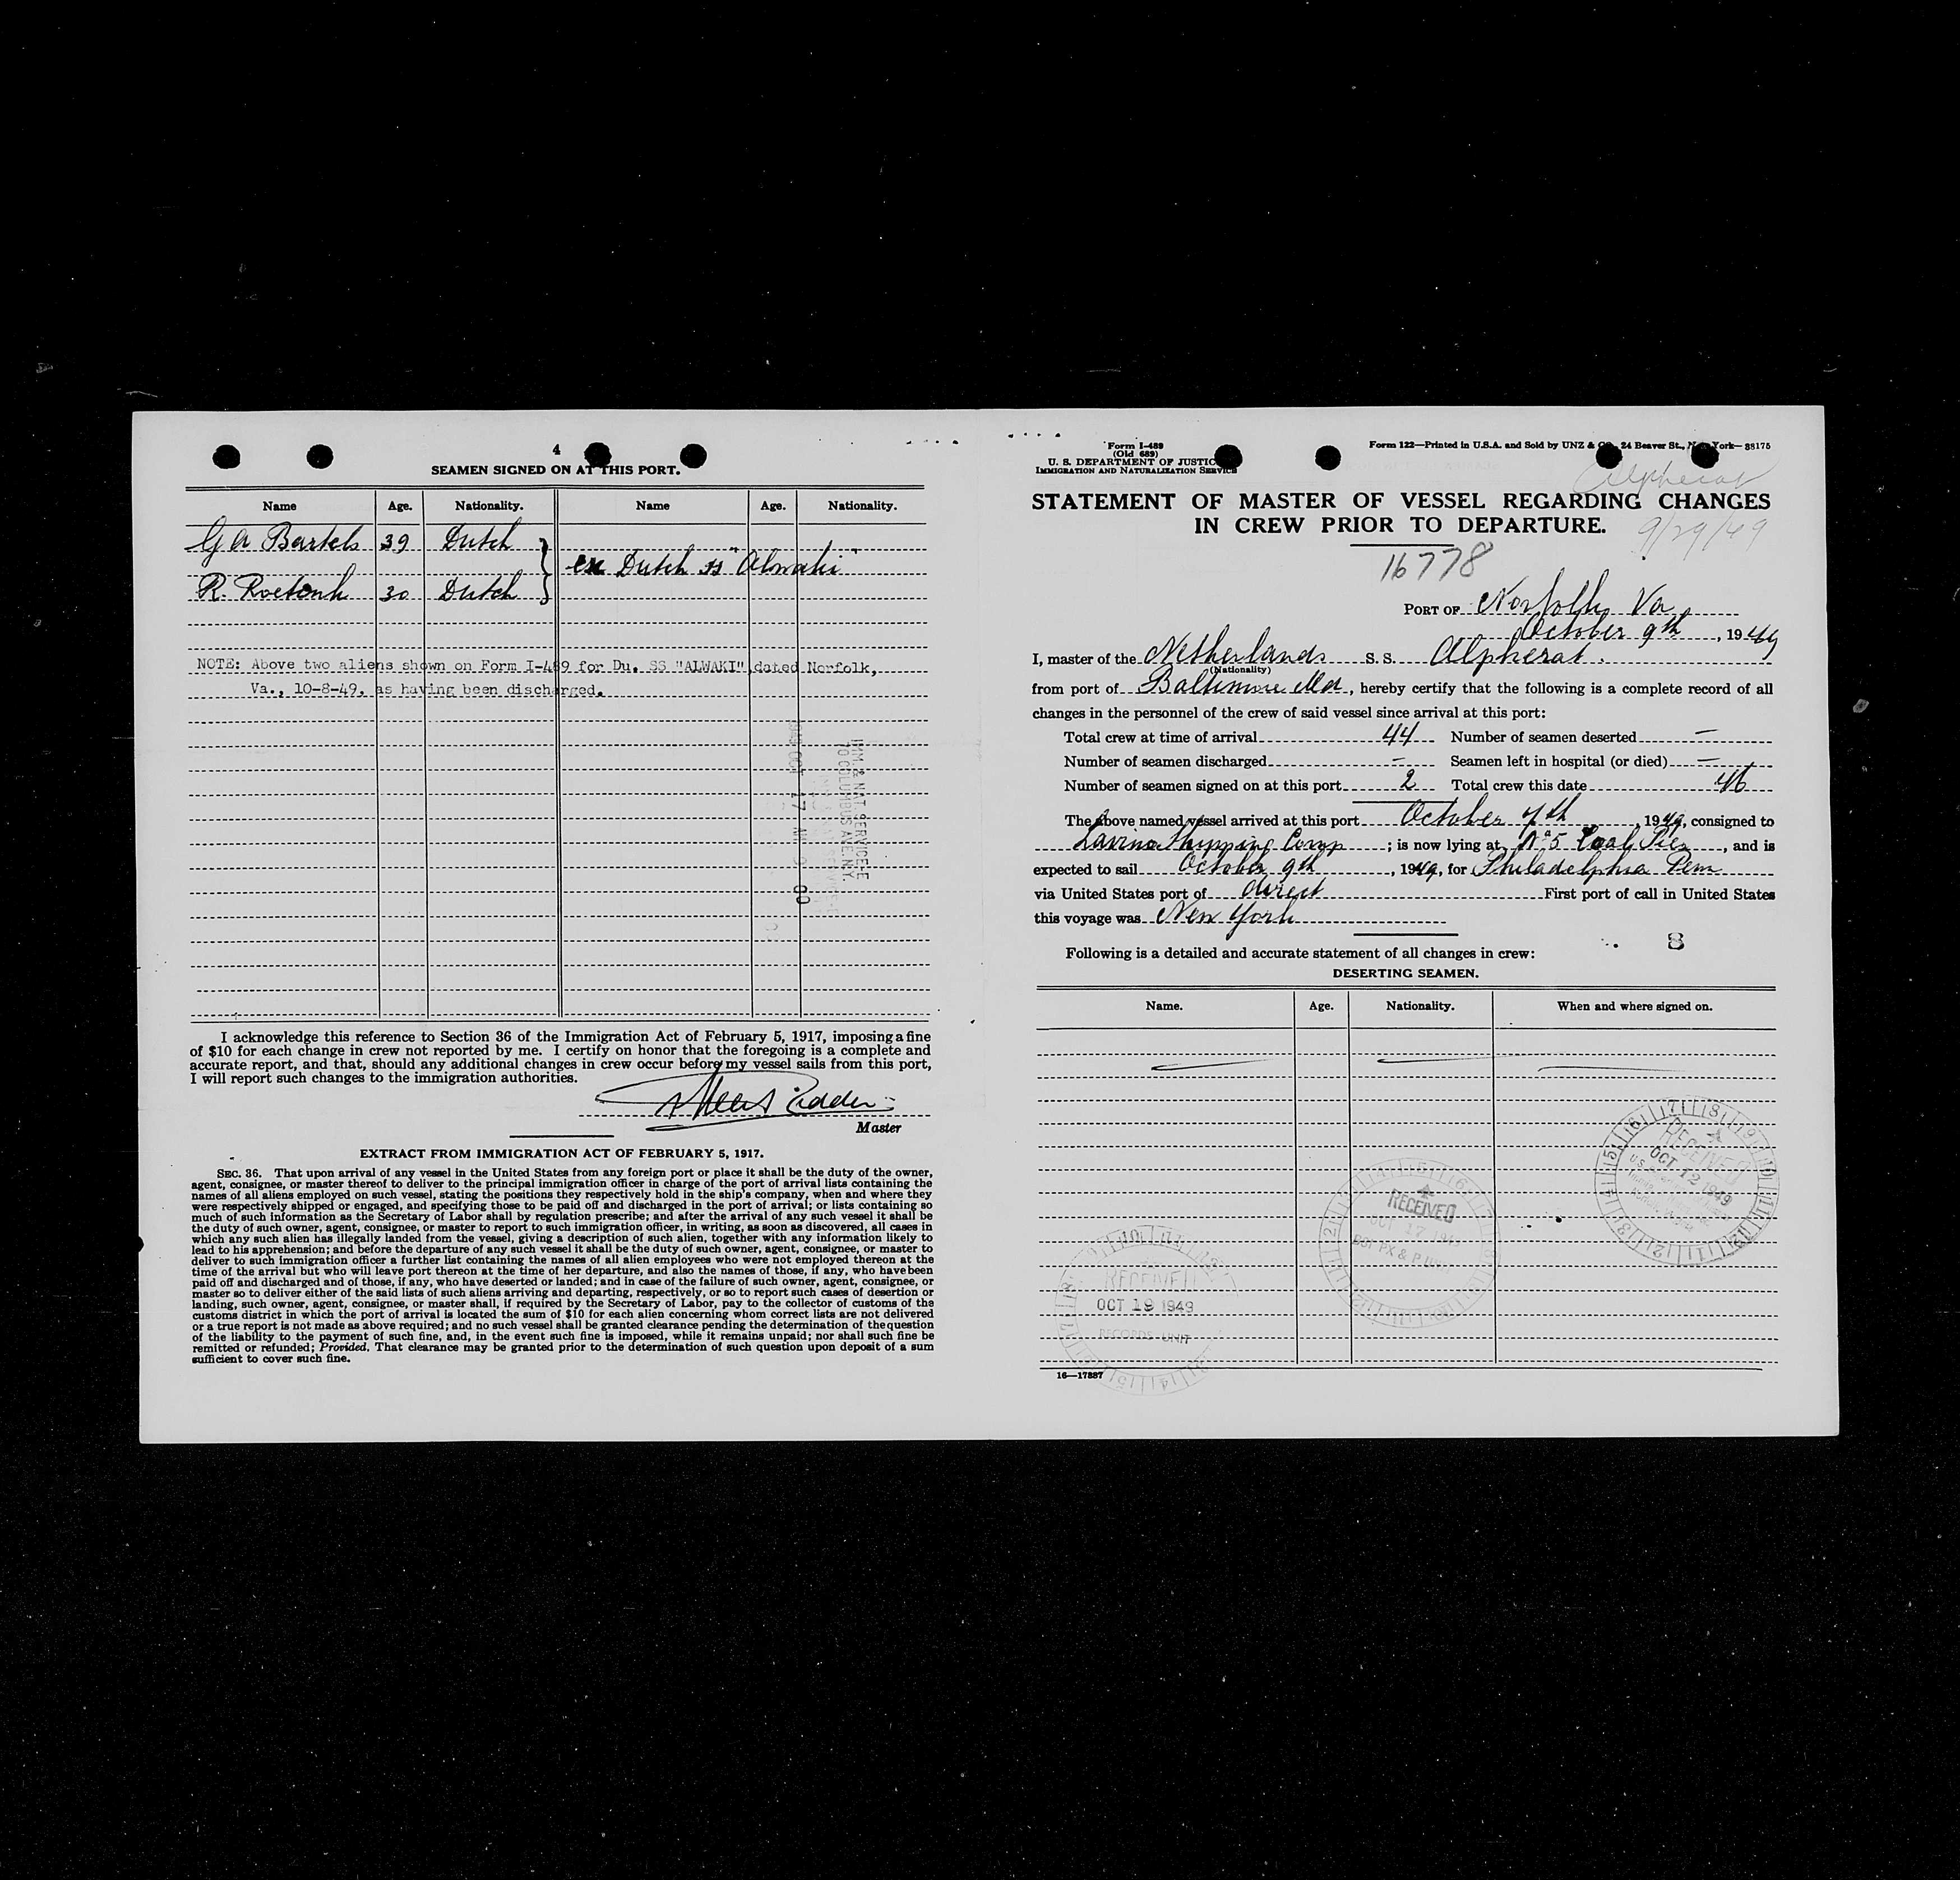 4
SEAMEN SIGNED ON AT THIS PORT.
Name Age. Nationality. Name Age. Nationality.
G A Bartels 39 Dutch
ex Dutch ss "Alwaki"
R. Roetenk 30 Dutch
NOTE: Above two aliens shown on Form I-489 for Du. SS "ALWAKI", dated Norfolk,
Va., 10-8-49, as having been discharged.
IMM & NAT. SERVICE-E
70 COLUMBUS AVE. N.Y.
I acknowledge this reference to Section 36 of the Immigration Act of February 5, 1917, imposing a fine
of $10 for each change in crew not reported by me. I certify on honor that the foregoing is a complete and
accurate report, and that, should any additional changes in crew occur before my vessel sails from this port,
I will report such changes to the immigration authorities.
Master
EXTRACT FROM IMMIGRATION ACT OF FEBRUARY 5, 1917.
SEC. 36. That upon arrival of any vessel in the United States from any foreign port or place it shall be the duty of the owner,
agent, consignee, or master thereof to deliver to the principal immigration officer in charge of the port of arrival lists containing the
names of all aliens employed on such vessel, stating the positions they respectively hold in the ship's company, when and where they
were respectively shipped or engaged, and specifying those to be paid off and discharged in the port of arrival; or lists containing so
much of such information as the Secretary of Labor shall by regulation prescribe; and after the arrival of any such vessel it shall be
the duty of such owner, agent, consignee, or master to report to such immigration officer, in writing, as soon as discovered, all cases in
which any such alien has illegally landed from the vessel, giving a description of such alien, together with any information likely to
lead to his apprehension; and before the departure of any such vessel it shall be the duty of such owner, agent, consignee, or master to
deliver to such immigration officer a further list containing the names of all alien employees who were not employed thereon at the
time of the arrival but who will leave port thereon at the time of her departure, and also the names of those, if any, who have been
paid off and discharged and of those, if any, who have deserted or landed; and in case of the failure of such owner, agent, consignee, or
master so to deliver either of the said lists of such aliens arriving and departing, respectively, or so to report such cases of desertion or
landing, such owner, agent, consignee, or master shall, if required by the Secretary of Labor, pay to the collector of customs of the
customs district in which the port of arrival is located the sum of $10 for each alien concerning whom correct lists are not delivered
or a true report is not made as above required; and no such vessel shall be granted clearance pending the determination of the question
of the liability to the payment of such fine, and, in the event such fine is imposed, while it remains unpaid; nor shall such fine be
remitted or refunded; Provided, That clearance may be granted prior to the determination of such question upon deposit of a sum
sufficient to cover such fine.
Form I-489
(Old 689)
U. S. DEPARTMENT OF JUSTICE
IMMIGRATION AND NATURALIZATION SERVICE
Form 122—Printed in U.S.A. and Sold by UNZ & CO., 24 Beaver St., New York—38175
Alpherat
STATEMENT OF MASTER OF VESSEL REGARDING CHANGES
IN CREW PRIOR TO DEPARTURE.
9/29/49
16778
PORT OF Norfolk, Va
October 9th, 1949
I, master of the Netherlands S. S. Alpherat.
(Nationality)
from port of Baltimore Md, hereby certify that the following is a complete record of all
changes in the personnel of the crew of said vessel since arrival at this port:
Total crew at time of arrival 44 Number of seamen deserted —
Number of seamen discharged - Seamen left in hospital (or died) —
Number of seamen signed on at this port 2 Total crew this date 46
The above named vessel arrived at this port October 7th, 1949, consigned to
Lavino Shipping Comp; is now lying at No 5 Coal Pier, and is
expected to sail October 9th, 1949, for Philadelphia Penn
via United States port of direct First port of call in United States
this voyage was New York
8
Following is a detailed and accurate statement of all changes in crew:
DESERTING SEAMEN.
Name. Age. Nationality. When and where signed on.
RECEIVED
OCT 12 1949
RECEIVED
OCT 17
RECEIVED
OCT 19 1949
RECORDS UNIT
16—17887